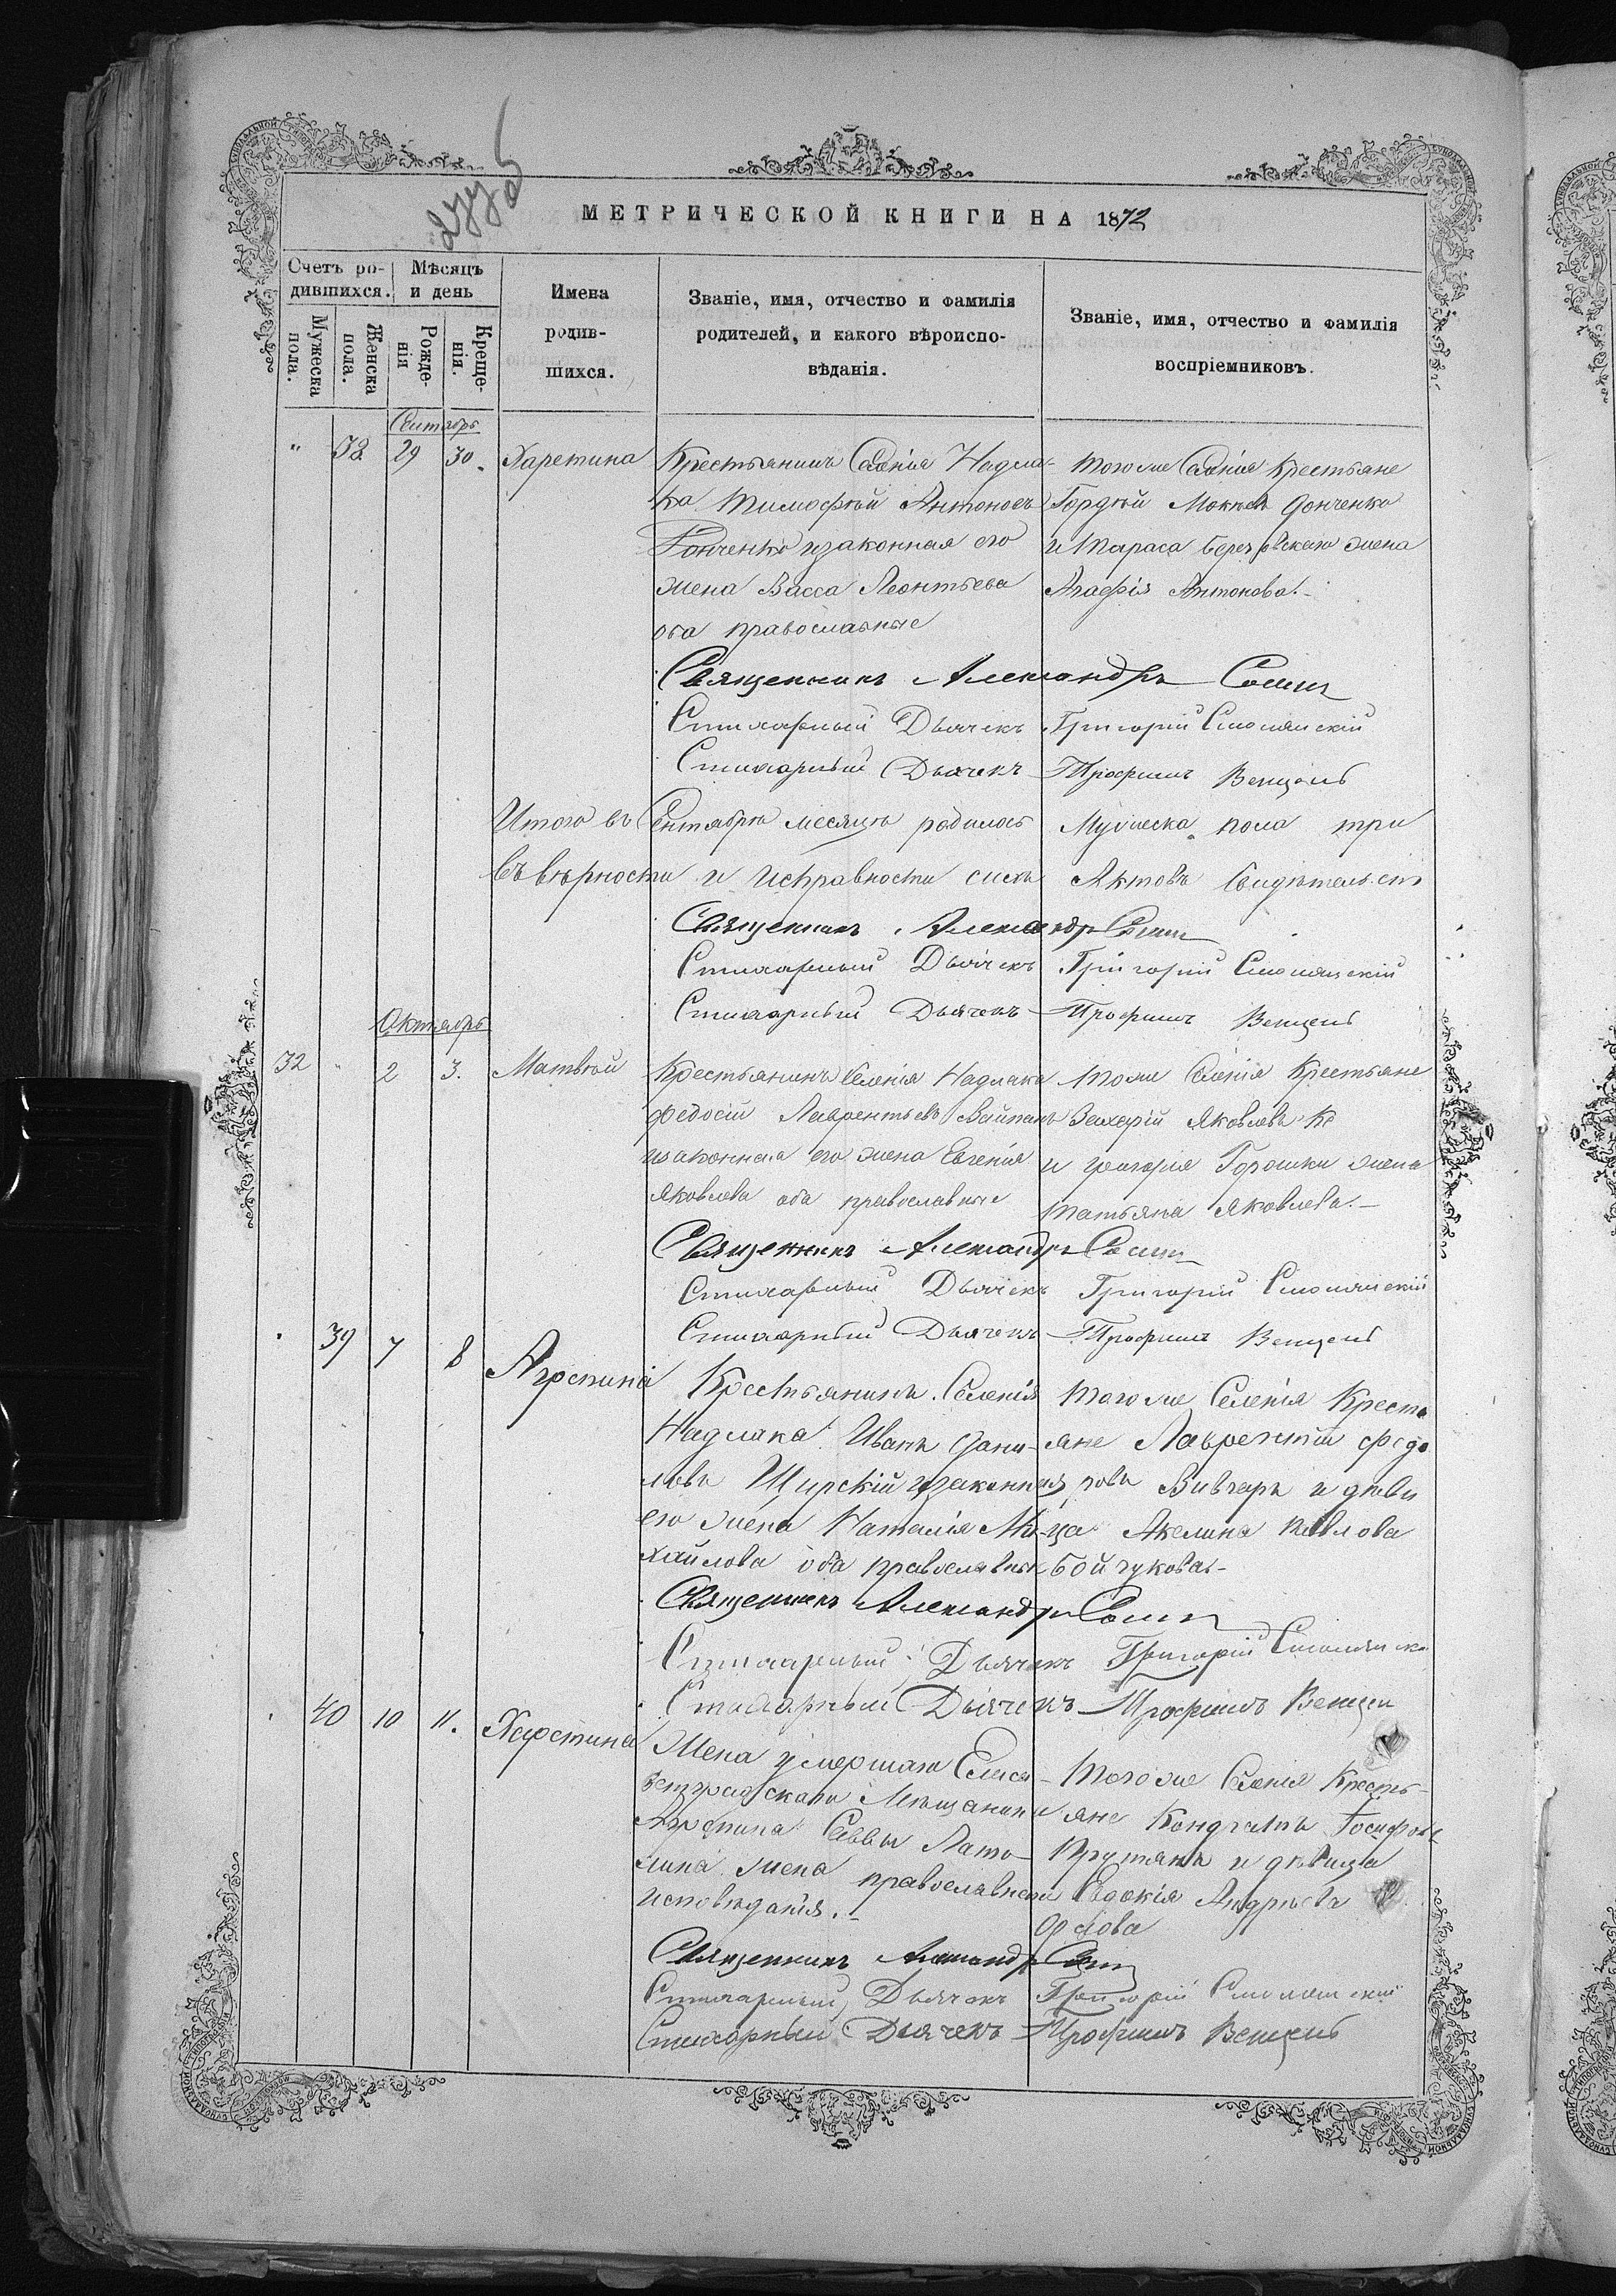 МЕТРИЧЕСКОЙ КНИГИ НА 1872
Счетъ ро-
дившихся.
Мѣсяцъ
и день
Имена
родив-
шихся.
Званіе, имя, отчество и фамилія
родителей, и какого вѣроиспо-
вѣданія.
Званіе, имя, отчество и фамилія
воспріемниковъ.
Мужеска
пола.
Женска
пола.
Рожде-
нія
Креще-
нія.
Сентябрь
" 38 29 30. Харетина
Крестьянинъ Селенія Надла-
ка Тимофѣй Антоновъ
Гонченко и законная его
жена Васса Леонтьева
оба православные
тогоже Селенія Крестьяне
Гордѣй Мокіевъ Донченко
и Тараса Березовскаго жена
Агафія Антонова.-
Священникъ Александръ
Стихарный Дьячекъ Григорій Смолянскій
Стихарный Дьячекъ Трофимъ Венцель
Итого въ Сентябрѣ месяцѣ родилось Мужеска пола три
Въ вѣрности и исправности сихъ Актовъ Свидѣтельст
Священникъ Александръ
Стихарный Дьячекъ Григорій Смолянскій
Стихарный Дьячекъ Трофимъ Венцель
Октябрь
32 " 2 3. Матвѣй
Крестьянинъ Селенія Надлака
Федосій Лаврентьевъ
и законная его жена Евгенія
Яковлева оба православные
тогоже Селенія Крестьяне
Захарій Яковлевъ
и Григорія Горошки жена
Татьяна Яковлева.-
Священникъ Александръ
Стихарный Дьячекъ Григорій Смолянскій
Стихарный Дьячекъ Трофимъ Венцель
39 7 8 Агрепина
Крестьянинъ Селенія
Надлака Иванъ Дани-
ловъ Щирскій и законная
его жена Наталія Ми-
хайлова оба православные
тогоже Селенія Кресть
яне Лаврентій Федо
ровъ Вивчаръ и дѣви
ца Акелина Павлова
Бойчукова-
Священникъ Александръ
Стихарный Дьячекъ Григорій Смолянск
Стихарный Дьячекъ Трофимъ Венцел
40 10 11. Харетина
Жена умершаго Елиса-
ветградскаго Мѣщанина
Агрепина Саввы
жена православнаго
исповѣданія.-
Тогоже Селенія Кресть-
яне Кондратъ Іосифовъ
Прутянъ и дѣвица
Евдокія Андреева
Орлова
Священникъ Александръ
Стихарный Дьячекъ Григорій Смолянскій
Стихарный Дьячекъ Трофимъ Венцель